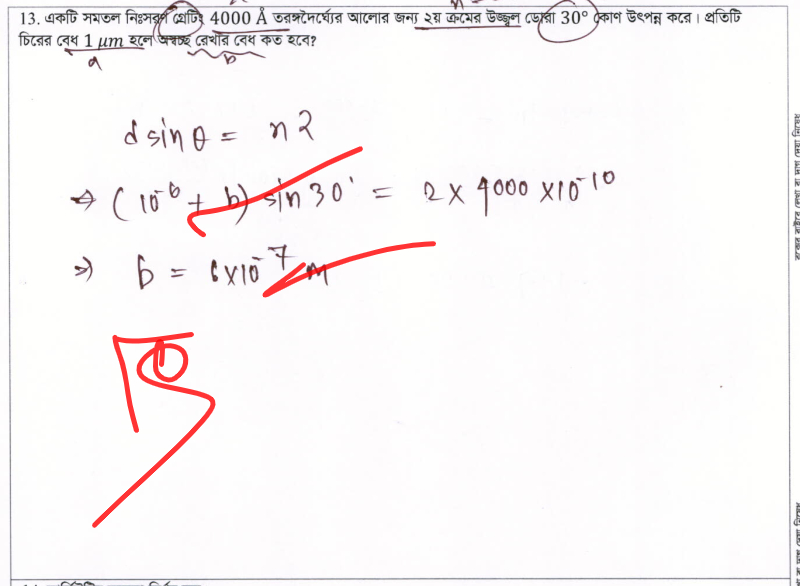 13. একটি সমতল নিঃসরণ গ্রেটিং 4000 Å তরঙ্গদৈর্ঘ্যের আলোর জন্য ২য় ক্রমের উজ্জ্বল ডোরা 30° কোণ উৎপন্ন করে। প্রতিটি
চিরের বেধ 1 μm হলে অস্বচ্ছ রেখার বেধ কত হবে?
a b
d sin θ = n λ
⇒ (10⁻⁶ + b) sin 30° = 2 × 4000 × 10⁻¹⁰
⇒ b = 6×10⁻⁷ m